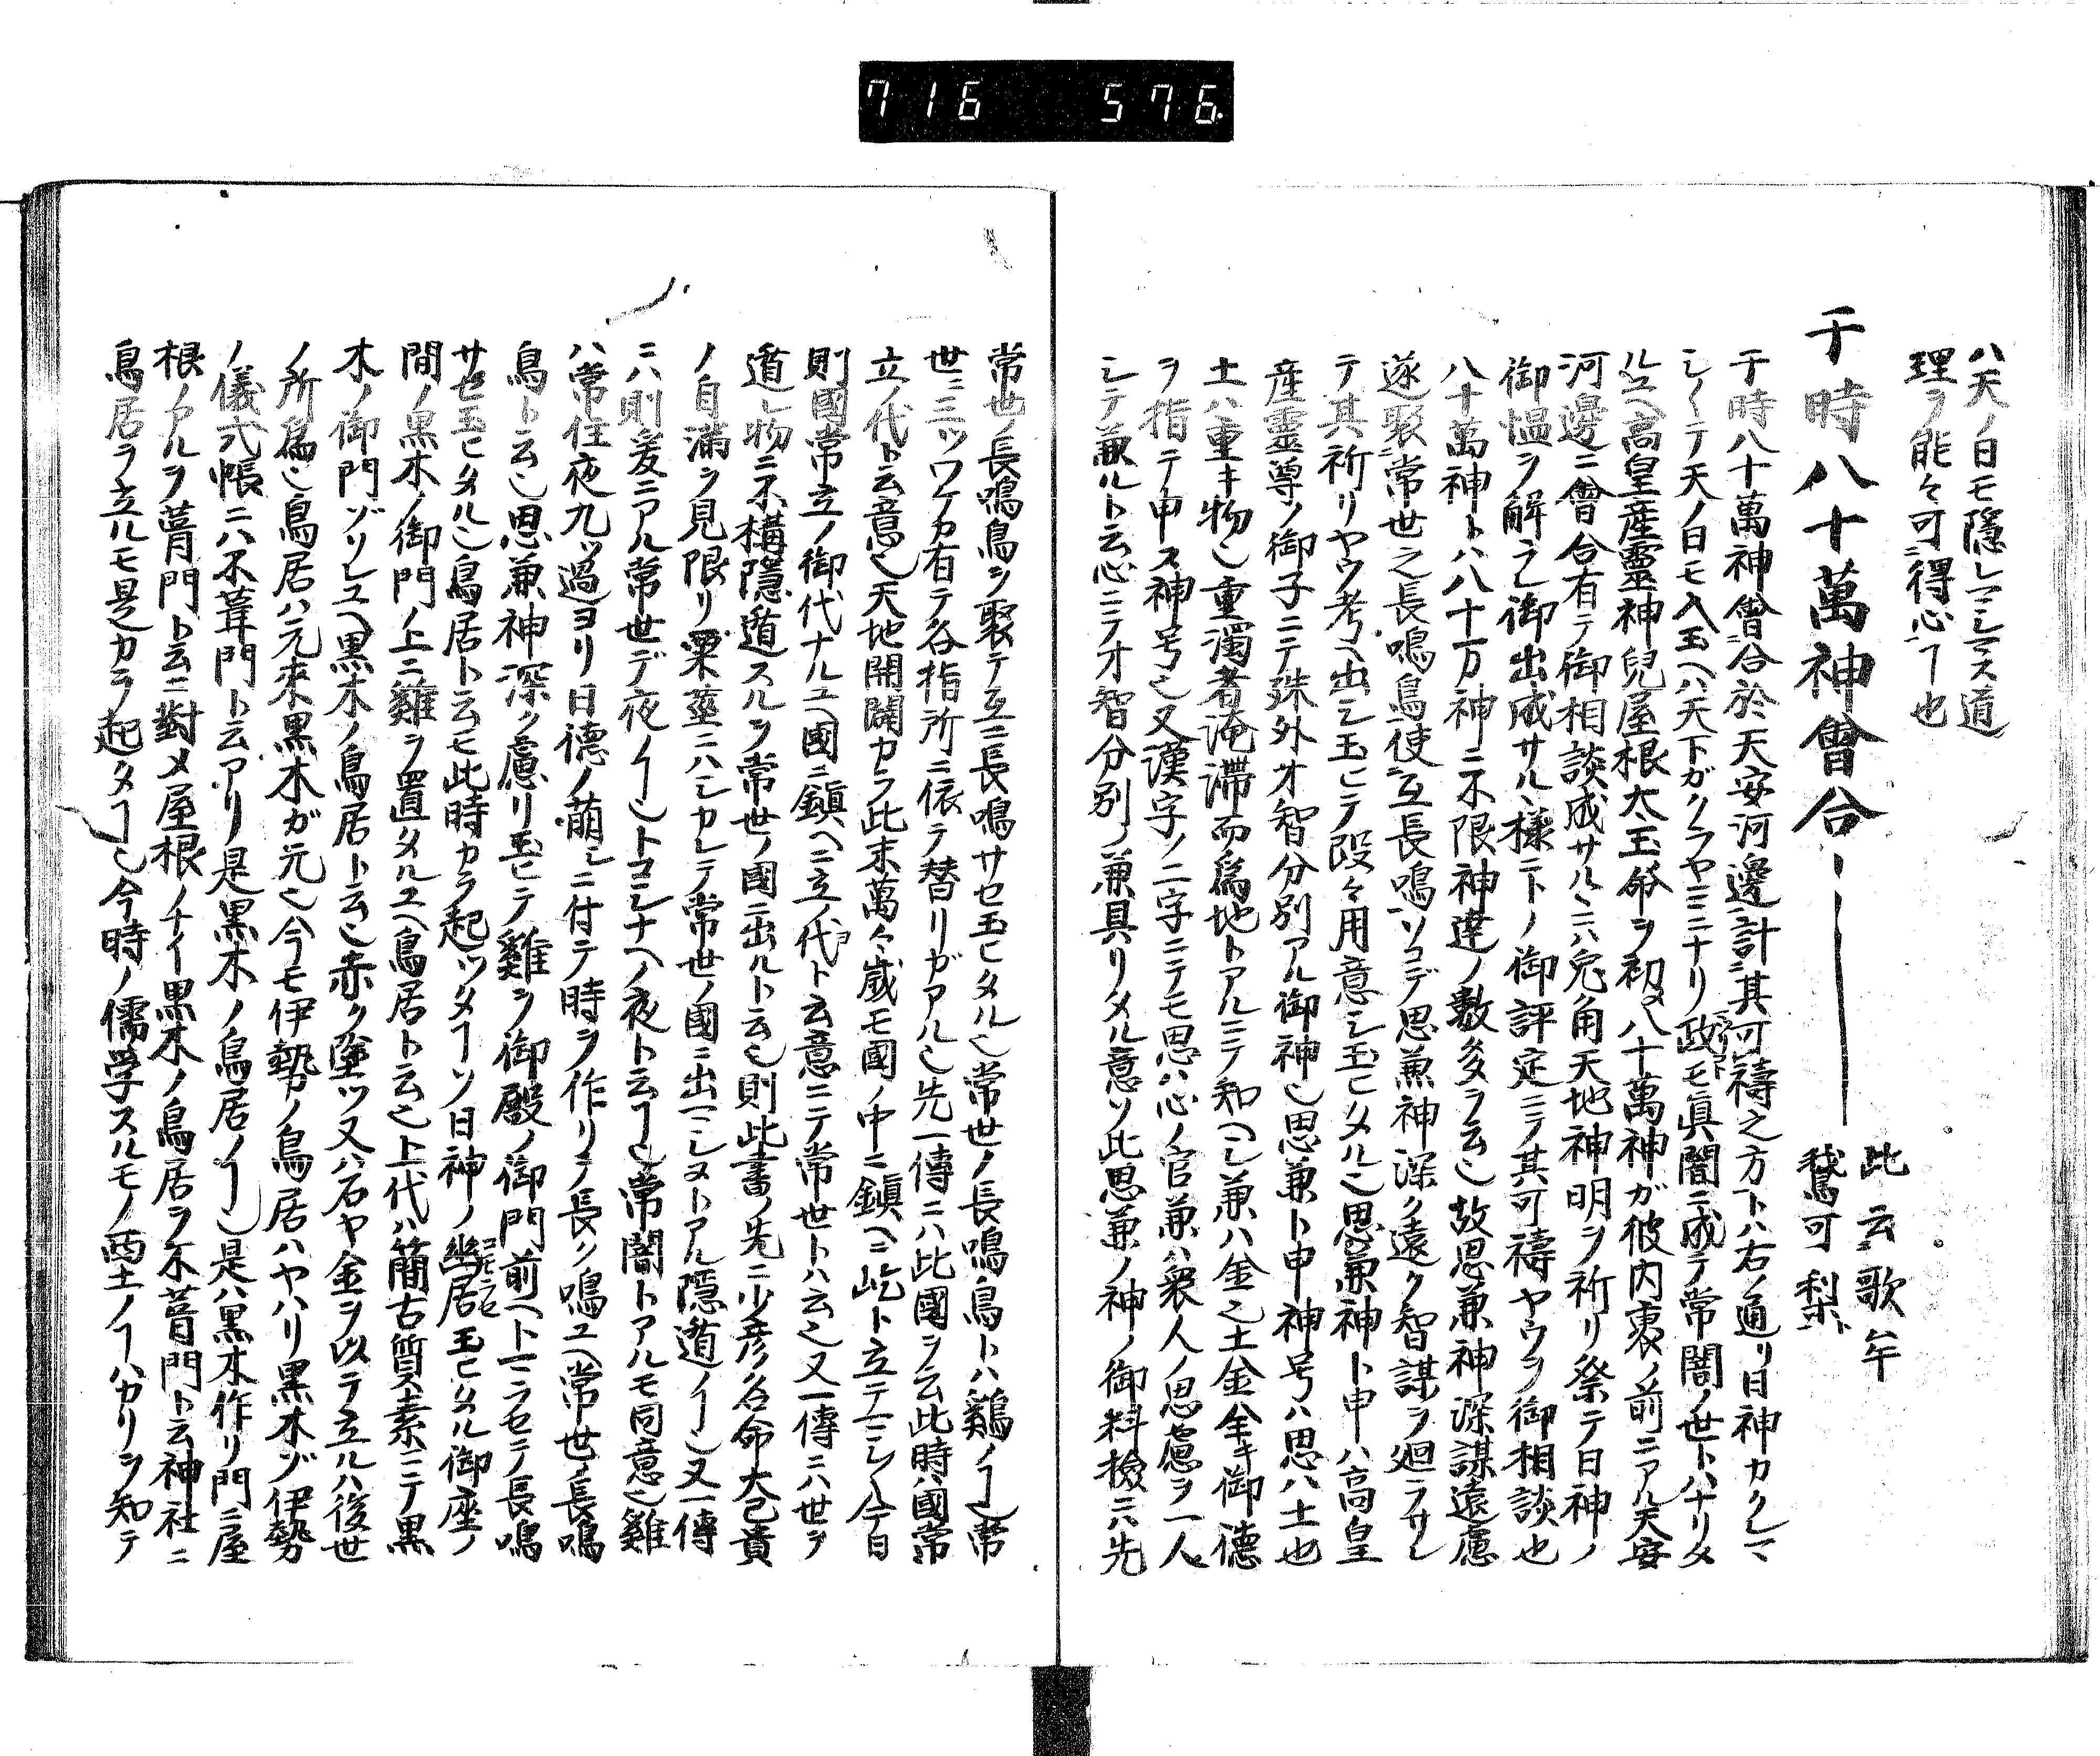 716 576.
ハ天ノ日モ隠レマシマス道
理ヲ能々可得心ヿ也
于時八十萬神會合ーー
此云歌牟
鵞可梨
于時八十萬神會合於天安河邊計其可禱之方トハ右ノ通リ日神カクレマ
シ〱テ天ノ日モ入玉ヘハ天下ガクラヤミニナリ政モ眞闇ニ成テ常闇ノ世トハナリタ
ルユヘ高皇産靈神兒屋根太玉命ヲ初メ八十萬神ガ彼内裏ノ前ニアル天安
河邊ニ會合有テ御相談成サルヽニハ兎角天地神明ヲ祈リ祭テ日神ノ
御慍ヲ解之御出成サルヽ樣ニトノ御評定ニテ其可禱ヤウヲ御相談也
八十萬神トハ八十万神ニ不限神達ノ數多ヲ云〆故思兼神深謀遠慮
遂聚常世之長鳴鳥使互長鳴ソコデ思兼神深ク遠ク智謀ヲ廻ラサレ
テ其祈リヤウ考ヘ出シ玉ヒテ段々用意シ玉ヒタル〆思兼神ト申ハ高皇
産靈尊ノ御子ニテ殊外才智分別アル御神〆思兼ト申神号ハ思ハ土也
土ハ重キ物〆重濁者淹滯而爲地トアルニテ知ヘシ兼ハ金之土金全キ御德
ヲ指テ申ス神号〆又漢字ノ二字ニテモ思ハ心ノ官兼ハ衆人ノ思慮ヲ一人
シテ兼ルト云心ニテ才智分別ノ兼具リタル意ソ此思兼ノ神ノ御料撿ニハ先
常世ノ長鳴鳥ヲ聚テ互ニ長鳴サセ玉ヒタル〆常世ノ長鳴鳥トハ鷄ノヿ〆常
世ニ三ツワケカ有テ各指所ニ依テ替リガアル〆先一傳ニハ此國ヲ云此時ハ國常
立ノ代ト云意〆天地開闢カラ此末萬々歳モ國ノ中ニ鎭ヘニ屹ト立テマシ〱今日
則國常立ノ御代ナルユヘ國ニ鎭ヘニ立ノ代ト云意ニテ常世トハ云〆又一傳ニハ世ヲ
遁レ物ニ不構隱遁スルヲ常世ノ國ニ出ルト云〆則此書ノ先ニ少彦名命大己貴
ノ自滿ヲ見限リ粟莖ニハシカレテ常世ノ國ニ出マシヌトアル隱遁ノヿ〆又一傳
ニハ則爰ニアル常世デ夜ノヿ〆トコシナヘノ夜ト云ヿ〆常闇トアルモ同意〆雞
ハ常住夜九ツ過ヨリ日德ノ萠シニ付テ時ヲ作リテ長ク鳴ユヘ常世ノ長鳴
鳥ト云〆思兼神深ク慮リ玉ヒテ雞ヲ御殿ノ御門前ヘトマラセテ長鳴
サセ玉ヒタル〆鳥居ト云モ此時カラ起ツタヿソ日神ノ幽居玉ヒタル御座ノ
間ノ黒木ノ御門ノ上ニ雞ヲ置タルユヘ鳥居ト云〆上代ハ簡古質素ニテ黒
木ノ御門ゾソレユヘ黒木ノ鳥居ト云〆赤ク塗ツ又ハ石ヤ金ヲ以テ立ルハ後世
ノ所爲〆鳥居ハ元來黒木ガ元〆今モ伊勢ノ鳥居ハヤハリ黒木ゾ伊勢
ノ儀式帳ニハ不葺門ト云アリ是黒木ノ鳥居ノヿ〆是ハ黒木作リ門ニ屋
根ノアルヲ葺門ト云ニ對メ屋根ノナイ黒木ノ鳥居ヲ不葺門ト云神社ニ
鳥居ヲ立ルモ是カラ起タヿ〆今時ノ儒学スルモノ西土ノヿハカリヲ知テ